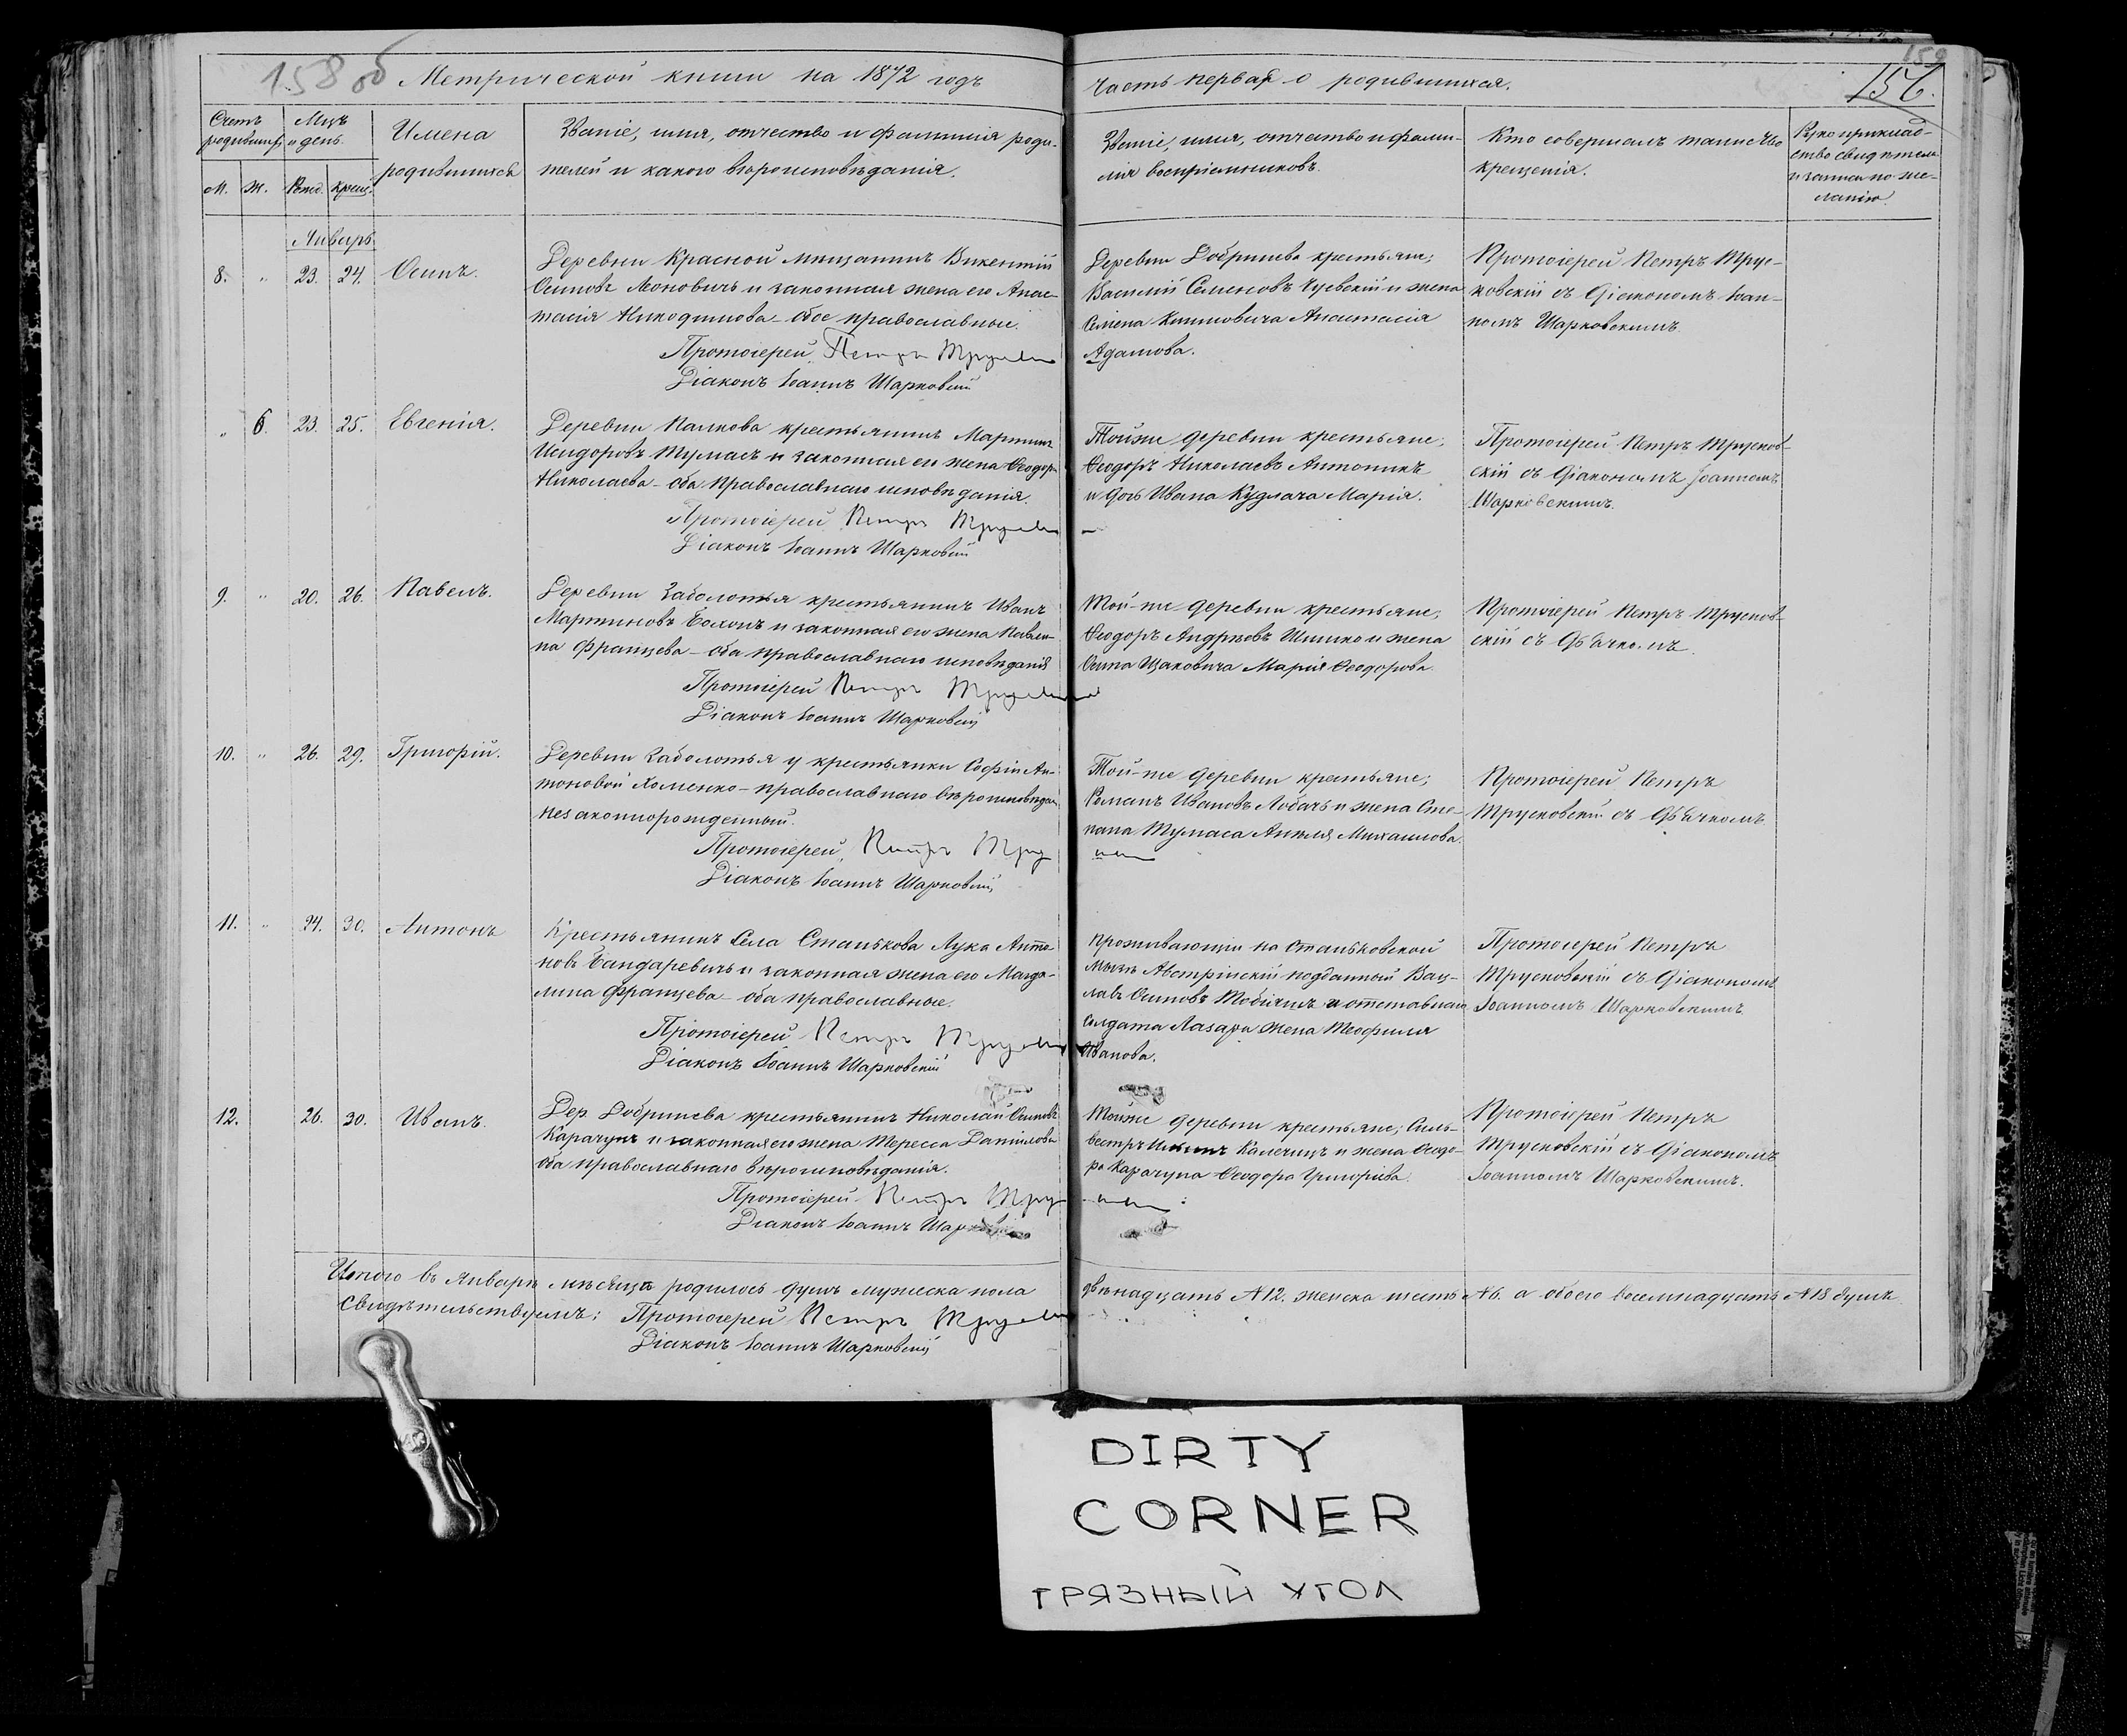 158 об
Метрической книги на 1872 годъ
часть первая о родившихся.
159
156.
Счетъ родившихся
Мцъ и день.
Имена родившихся
Званіе, имя, отчество и фамилія роди-
телей и какого вѣроисповѣданія.
Званіе, имя, отчество и фами-
лія воспріемниковъ.
Кто совершалъ таинство
крещенія.
Рукоприклад-
ство свидѣтелей
и записи по же-
ланію.
М. Ж. Рожд. крещ.
Январь
8. " 23. 24. Осипъ.
Деревни Красной мещанинъ Викентій
Осиповъ Леоновичъ и законная жена его Анас-
тасія Никодимова - обое православные.
Протоіерей Петръ
Діаконъ Іоаннъ Шарковскій
Деревни Добринева крестьяне;
Василій Семеновъ и жена
Семена Климовича Анастасія
Адамова.
Протоіерей Петръ Трус-
ковскій съ Діакономъ Іоан-
номъ Шарковскимъ.
" 6. 23. 25. Евгенія.
Деревни Палкова крестьянинъ Мартинъ
Исидоровъ Тумасъ и законная его жена Феодора
Николаева - оба Православнаго исповѣданія.
Протоіерей Петръ
Діаконъ Іоаннъ Шарковскій
Тойже деревни крестьяне;
Феодоръ Николаевъ Антоникъ
и дочь Ивана Кудлача Марія.
Протоіерей Петръ Трусков-
скій съ Діакономъ Іоанномъ
Шарковскимъ.
9. " 20. 26. Павелъ.
Деревни Заболотья крестьянинъ Иванъ
Мартиновъ Бохонъ и законная его жена Павли-
на Францева - оба православнаго исповѣданія
Протоіерей Петръ
Діаконъ Іоаннъ Шарковскій
Той-же деревни крестьяне;
Феодоръ Андреевъ Шишко и жена
Осипа Марія Феодорова.
Протоіерей Петръ Трусков-
скій съ Дьячкомъ.
10. " 26. 29. Григорій.
Деревни Заболотья у крестьянки Софіи Ан-
тоновой Хоменко - православнаго вѣроисповѣдан.
незаконнорожденный.
Протоіерей, Петръ
Діаконъ Іоаннъ Шарковскій
Той-же деревни крестьяне;
Романъ Ивановъ Лобачъ и жена Сте-
пана Тумаса Анеля Михайлова.
Протоіерей Петръ
Трусковскій съ Дьячкомъ
11. " 24. 30. Антонъ
Крестьянинъ Села Станькова Лука Анто-
новъ Бандаревичъ и законная жена его Магда-
лина Францева - оба православные.
Протоіерей Петръ
Діаконъ Іоаннъ Шарковскій
Проживающіи на Станьковской
мызѣ Австрійскій подданный Вац-
лавъ Осиповъ Тобичилъ и отставнаго
солдата Лазаря жена Теофилія
Иванова.
Протоіерей Петръ
Трусковскій съ Діакономъ
Іоанномъ Шарковскимъ
12. 26. 30. Иванъ.
Дер. Добринева крестьянинъ Николай Осиповъ
Карачунъ и законная его жена Тересса Данилова
оба православнаго вѣроисповѣданія.
Протоіерей Петръ
Діаконъ Іоаннъ
Тойже деревни крестьяне; Силь-
вестръ Калечицъ и жена Феодо-
ра Карачуна Феодора Григоріева.
Протоіерей Петръ
Трусковскій съ Діакономъ
Іоанномъ Шарковскимъ.
Итого въ Январѣ мѣсяцѣ родилось душъ мужеска пола двѣнадцать №12. женска шесть №6. а обоего восемнадцать №18 душъ
Свидѣтельствуемъ: Протоіерей Петръ
Діаконъ Іоаннъ Шарковскій
DIRTY
CORNER
ГРЯЗНЫЙ УГОЛ